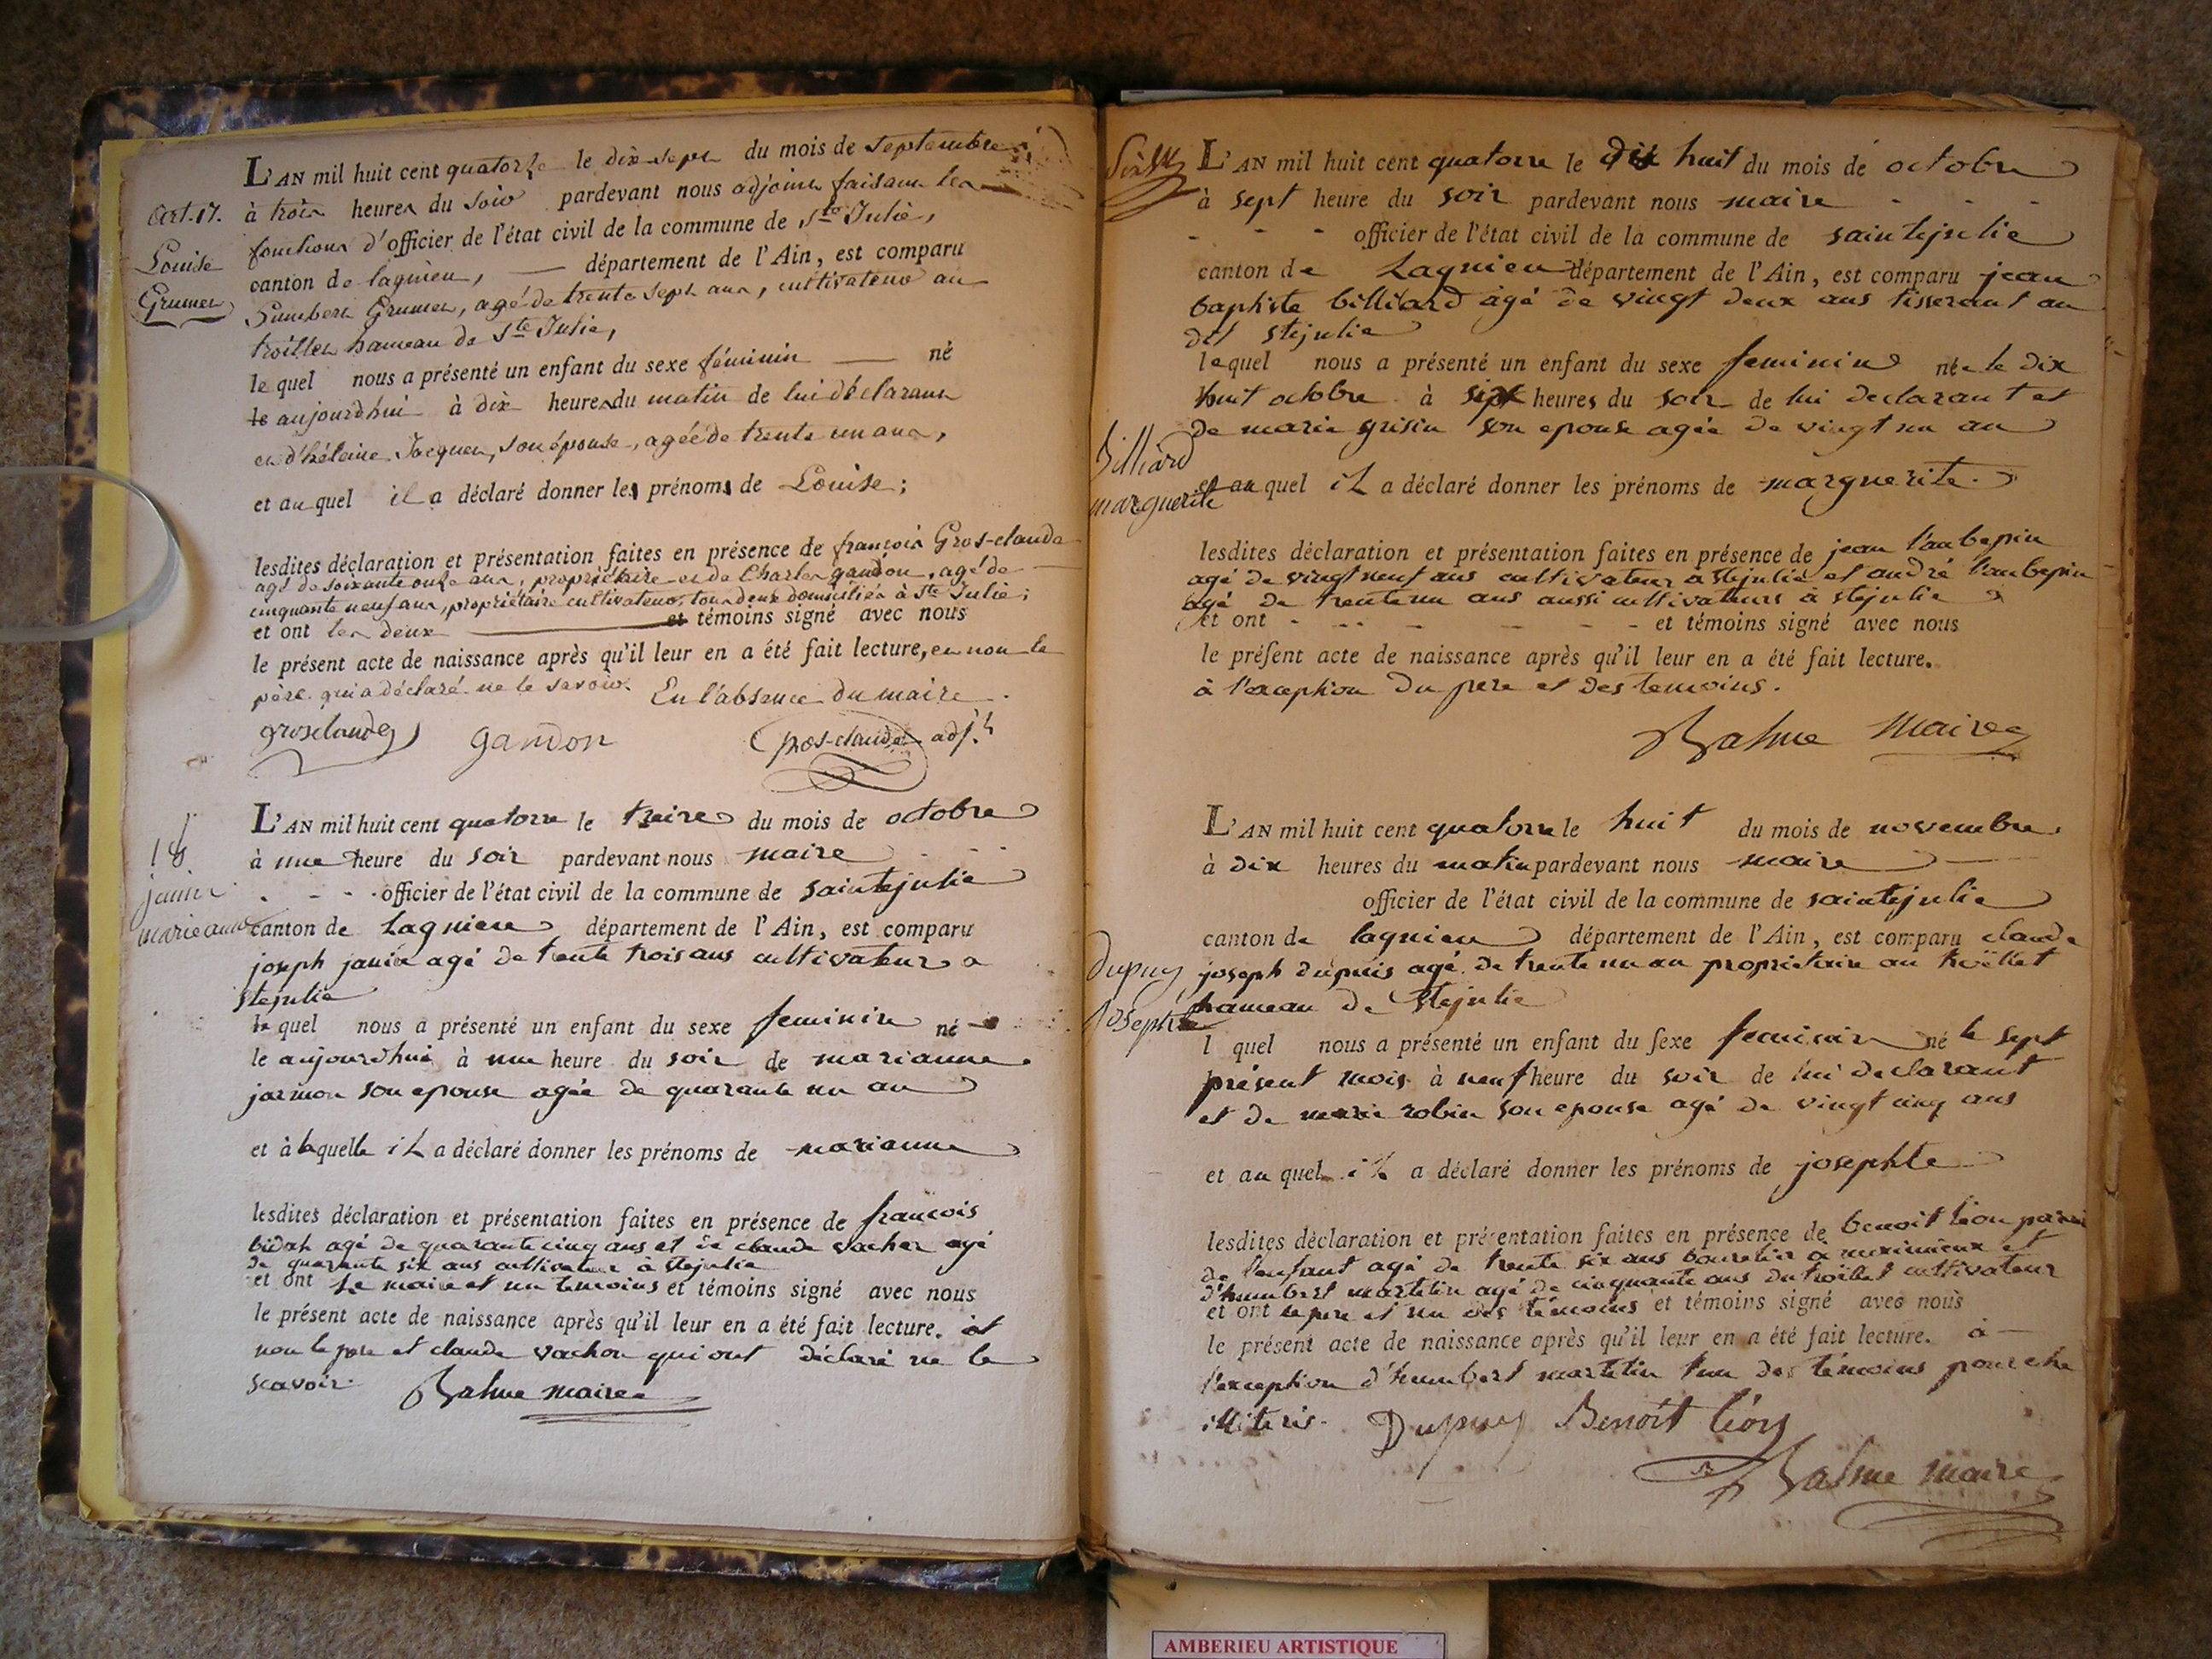 L'AN mil huit cent quatorze le dix-sept du mois de septembre
Art. 17. à trois heures du soir pardevant nous adjoint faisant les
fonctions d'officier de l'état civil de la commune de Ste Julie,
Louise
canton de lagnieu, département de l'Ain, est comparu
Grumet
humbert Grumet, agé de trente sept ans, cultivateur au
troillet hameau de Ste Julie,
le quel nous a présenté un enfant du sexe féminin né
le aujourdhui à dix heures du matin de lui déclarant
et d'hélaine Jacquet, son épouse, agéé de trente un ans,
et au quel il a déclaré donner les prénoms de Louise;
lesdites déclaration et présentation faites en présence de françois Gros-claude
agé de soixante onze ans, propriétaire et de Charles gandon, agé de
cinquante neuf ans, propriétaire cultivateur, tous deux domiciliés à Ste Julie;
et ont les deux et témoins signé avec nous
le présent acte de naissance après qu'il leur en a été fait lecture, et non le
père qui a déclaré ne le savoir. En l'absence du maire
grosclaude gandon gros-claude adj.t
L'AN mil huit cent quatorze le treize du mois de octobre
18 à une heure du soir pardevant nous maire
janin officier de l'état civil de la commune de saintejulie
marieanne canton de Lagnieu département de l'Ain, est comparu
joseph janin agé de trente trois ans cultivateur a
stejulie
le quel nous a présenté un enfant du sexe feminin né
le aujourdhui à une heure du soir de marianne
jarmon son epouse agée de quarante un an
et à laquelle il a déclaré donner les prénoms de marianne
lesdites déclaration et présentation faites en présence de francois
bidat agé de quarante cinq ans et de claude vachon agé
de quarante six ans cultivateur à stejulie
et ont le maire et un temoins et témoins signé avec nous
le présent acte de naissance après qu'il leur en a été fait lecture. et
non le pere et claude vachon qui ont déclaré ne le
scavoir. Balme maire
L'AN mil huit cent quatorze le dix huit du mois de octobre
à sept heure du soir pardevant nous maire
officier de l'état civil de la commune de saintejulie
canton de Lagnieu département de l'Ain, est comparu jean
baptiste billiard agé de vingt deux ans tisserant au
dit stejulie
lequel nous a présenté un enfant du sexe feminin née le dix
huit octobre à six heures du soir de lui declarant et
de marie grisin son epouse agée de vingt un an
billiard
marguerite et au quel il a déclaré donner les prénoms de marguerite.
lesdites déclaration et présentation faites en présence de jean l'aubepin
agé de vingt neuf ans cultivateur a stejulie et andré l'aubepin
agé de trente un ans aussi cultivateurs à stejulie
et ont et témoins signé avec nous
le présent acte de naissance après qu'il leur en a été fait lecture.
à l'exception du pere et des temoins.
Balme Maire
L'AN mil huit cent quatorze le huit du mois de novembre
à dix heures du matin pardevant nous maire
officier de l'état civil de la commune de saintejulie
canton de lagnieu département de l'Ain, est comparu claude
dupuy joseph dupuis agé de trente un an propriétaire au troëllet
hameau de stejulie
josephte
l quel nous a présenté un enfant du sexe feminin né le sept
présent mois à neuf heure du soir de lui declarant
et de marie robin son epouse agé de vingt cinq ans
et au quel il a déclaré donner les prénoms de josephte
lesdites déclaration et présentation faites en présence de benoit lion parein
de l'enfant agé de trente six ans bourelier a meximieux et
d'humbert martelin agé de cinquante ans du troillet cultivateur
et ont le pere et un des témoins et témoins signé avec nous
le présent acte de naissance après qu'il leur en a été fait lecture. à
l'exception d'humbert martelin l'un des témoins pour etre
illiteris. Dupuy Benoit léon
Balme maire
AMBERIEU ARTISTIQUE